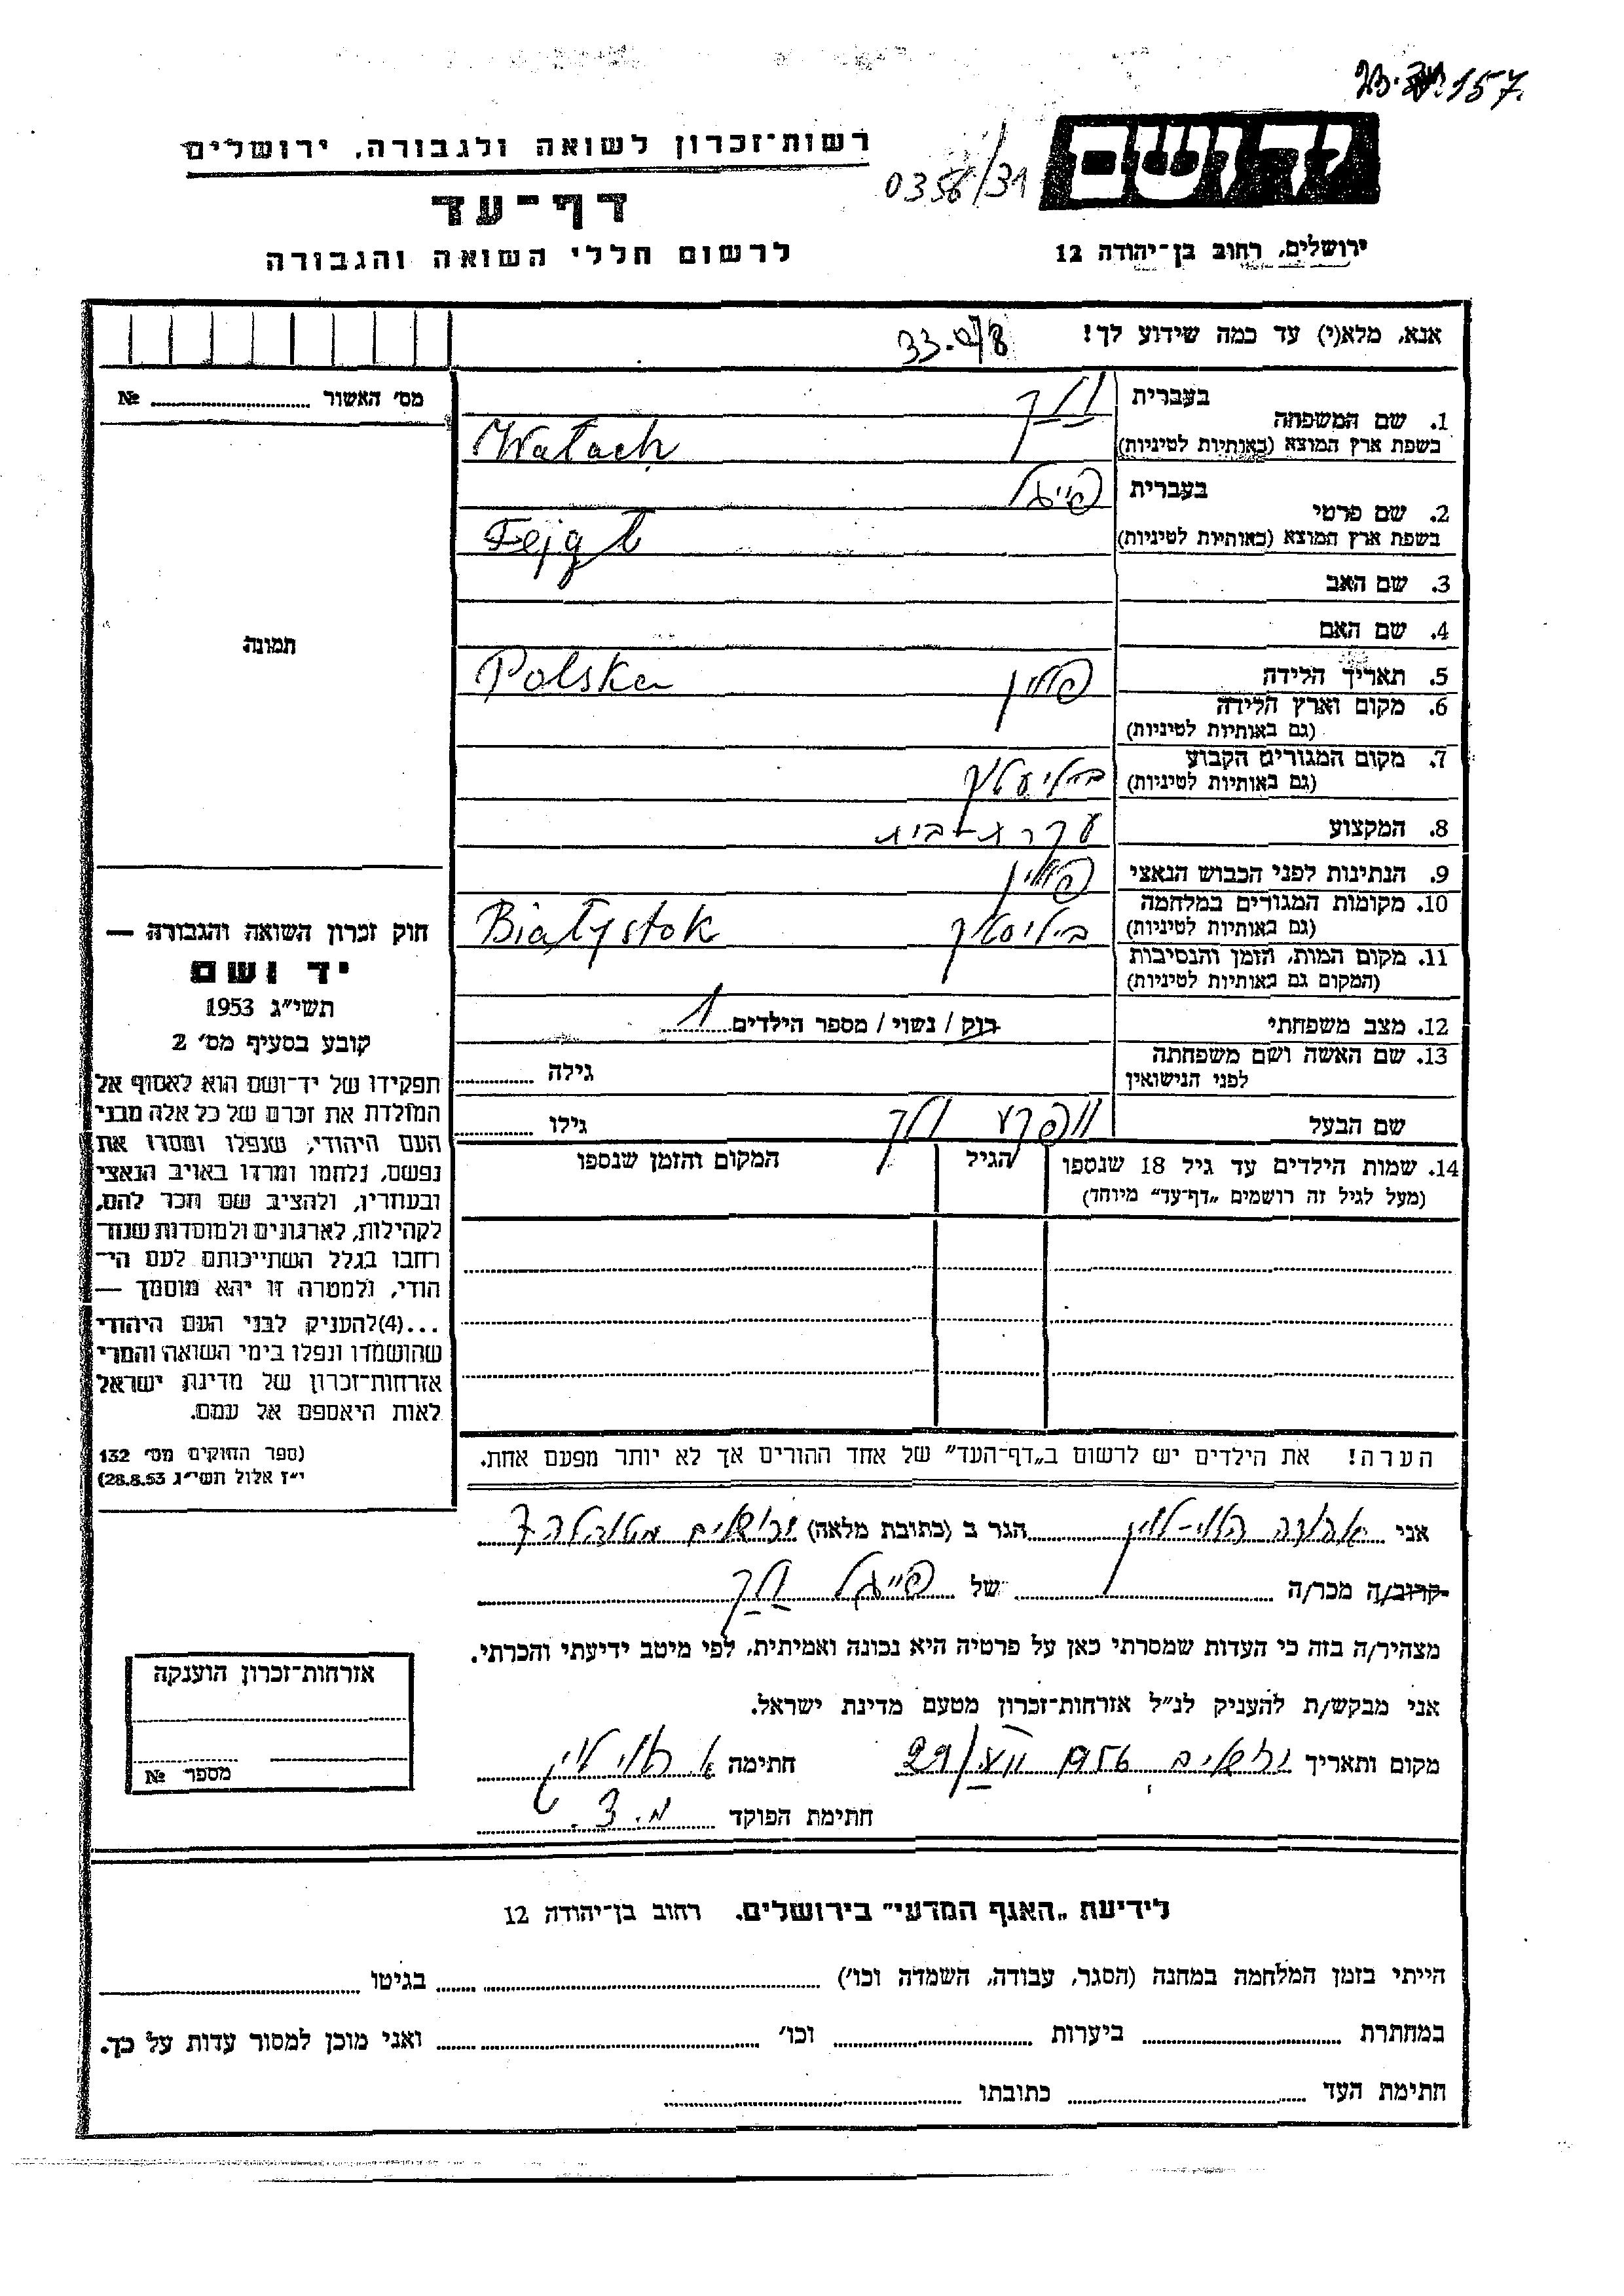 157.
0358/31
יד ושם
רשות־זכרון לשואה ולגבורה, ירושלים
דף־עד
לרשום חללי השואה והגבורה
ירושלים, רחוב בן־יהודה 12
אנא, מלא(י) עד כמה שידוע לך!
מס׳ האשור № 
1. שם המשפחה
בעברית
בשפת ארץ המוצא (באותיות לטיניות)
Wałach
2. שם פרטי
בעברית פייגל
בשפת ארץ המוצא (באותיות לטיניות)
Fejgl
3. שם האב
4. שם האם
5. תאריך הלידה
פולין Polska
6. מקום וארץ הלידה
(גם באותיות לטיניות)
7. מקום המגורים הקבוע
(גם באותיות לטיניות)
8. המקצוע עקרת־בית
9. הנתינות לפני הכבוש הנאצי פולין
10. מקומות המגורים במלחמה
(גם באותיות לטיניות)
Białystok
11. מקום המות, הזמן והנסיבות
(המקום גם באותיות לטיניות)
12. מצב משפחתי רוק / נשוי / מספר הילדים 1
13. שם האשה ושם משפחתה
לפני הנישואין
גילה
שם הבעל
גילו
14. שמות הילדים עד גיל 18 שנספו הגיל המקום והזמן שנספו
(מעל לגיל זה רושמים „דף־עד״ מיוחד)
הערה! את הילדים יש לרשום ב„דף־העד״ של אחד ההורים אך לא יותר מפעם אחת.
תמונה
חוק זכרון השואה והגבורה —
יד ושם
תשי״ג 1953
קובע בסעיף מס׳ 2
תפקידו של יד־ושם הוא לאסוף אל
המולדת את זכרם של כל אלה מבני
העם היהודי, שנפלו ומסרו את
נפשם, נלחמו ומרדו באויב הנאצי
ובעוזריו, ולהציב שם וזכר להם,
לקהילות, לארגונים ולמוסדות שנח־
רבו בגלל השתייכותם לעם הי־
הודי, ולמטרה זו יהא מוסמך —
...(4)להעניק לבני העם היהודי
שהושמדו ונפלו בימי השואה והמרי
אזרחות־זכרון של מדינת ישראל
לאות היאספם אל עמם.
(ספר החוקים מס׳ 132
י״ז אלול תשי״ג 28.8.53)
אני הגר ב (כתובת מלאה) ירושלים
קרוב/ה מכר/ה של פייגל
מצהיר/ה בזה כי העדות שמסרתי כאן על פרטיה היא נכונה ואמיתית, לפי מיטב ידיעתי והכרתי.
אני מבקש/ת להעניק לנ״ל אזרחות־זכרון מטעם מדינת ישראל.
מקום ותאריך ירושלים 1956 29 חתימה
חתימת הפוקד
אזרחות־זכרון הוענקה
מספר №
לידיעת „האגף המדעי״ בירושלים, רחוב בן־יהודה 12
הייתי בזמן המלחמה במחנה (הסגר, עבודה, השמדה וכו׳) בגיטו
במחתרת ביערות וכו׳ ואני מוכן למסור עדות על כך.
חתימת העד כתובתו